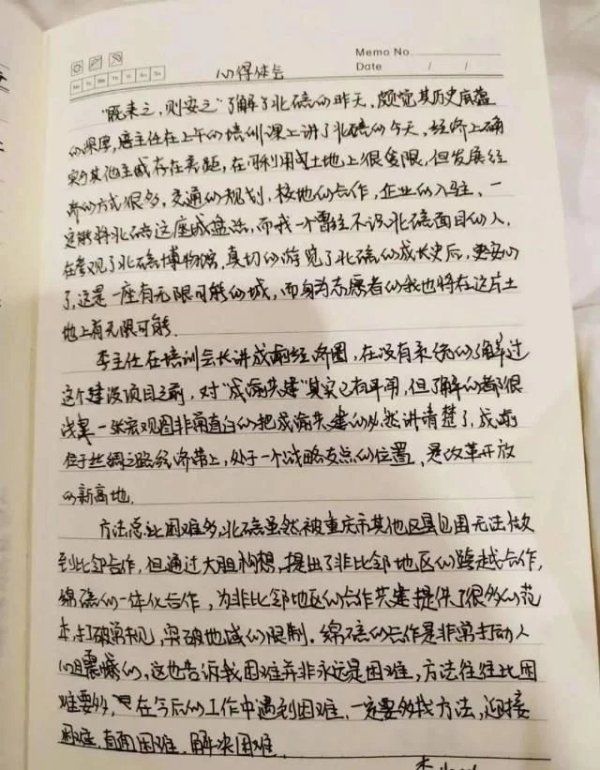 Memo No
Date / /
Mo Tu We Th Fr Sa Su
心得体会
"既来之,则安之"了解了北碚的昨天,颇觉其历史底蕴
的深厚,唐主任在上午的培训课上讲了北碚的今天,经济上确
实与其他主城存在差距,在可利用土地上很受限,但发展经
济的方式很多,交通的规划,校地的合作,企业的入驻,一
定能将北碚这座城盘活,而我一个曾经不识北碚面目的人,
在参观了北碚博物馆,真切的游览了北碚的成长史后,更安心
了,这是一座有无限可能的城,而身为志愿者的我也将在这片土
地上有无限可能.
李主任在培训会长讲成渝经济圈,在没有系统的了解过
这个建设项目之前,对"成渝共建"其实已有耳闻,但了解的都很
浅显一张宏观图非常直白的把成渝共建的必然讲清楚了,成渝
位于丝绸之路经济带上,处于一个战略支点的位置,是改革开放
的新高地.
方法总比困难多,北碚虽然被重庆市其他区县包围无法做
到比邻合作,但通过大胆构想,提出了非比邻地区的跨越合作,
绵碚的一体化合作,为非比邻地区的合作共建提供了很多的范
本,打破常规,突破地域的限制.绵碚的合作是非常打动人
心且震撼的,这也告诉我困难并非永远是困难,方法往往比困
难要多,在今后的工作中遇到困难,一定要多找方法,迎接
困难,直面困难,解决困难.
李